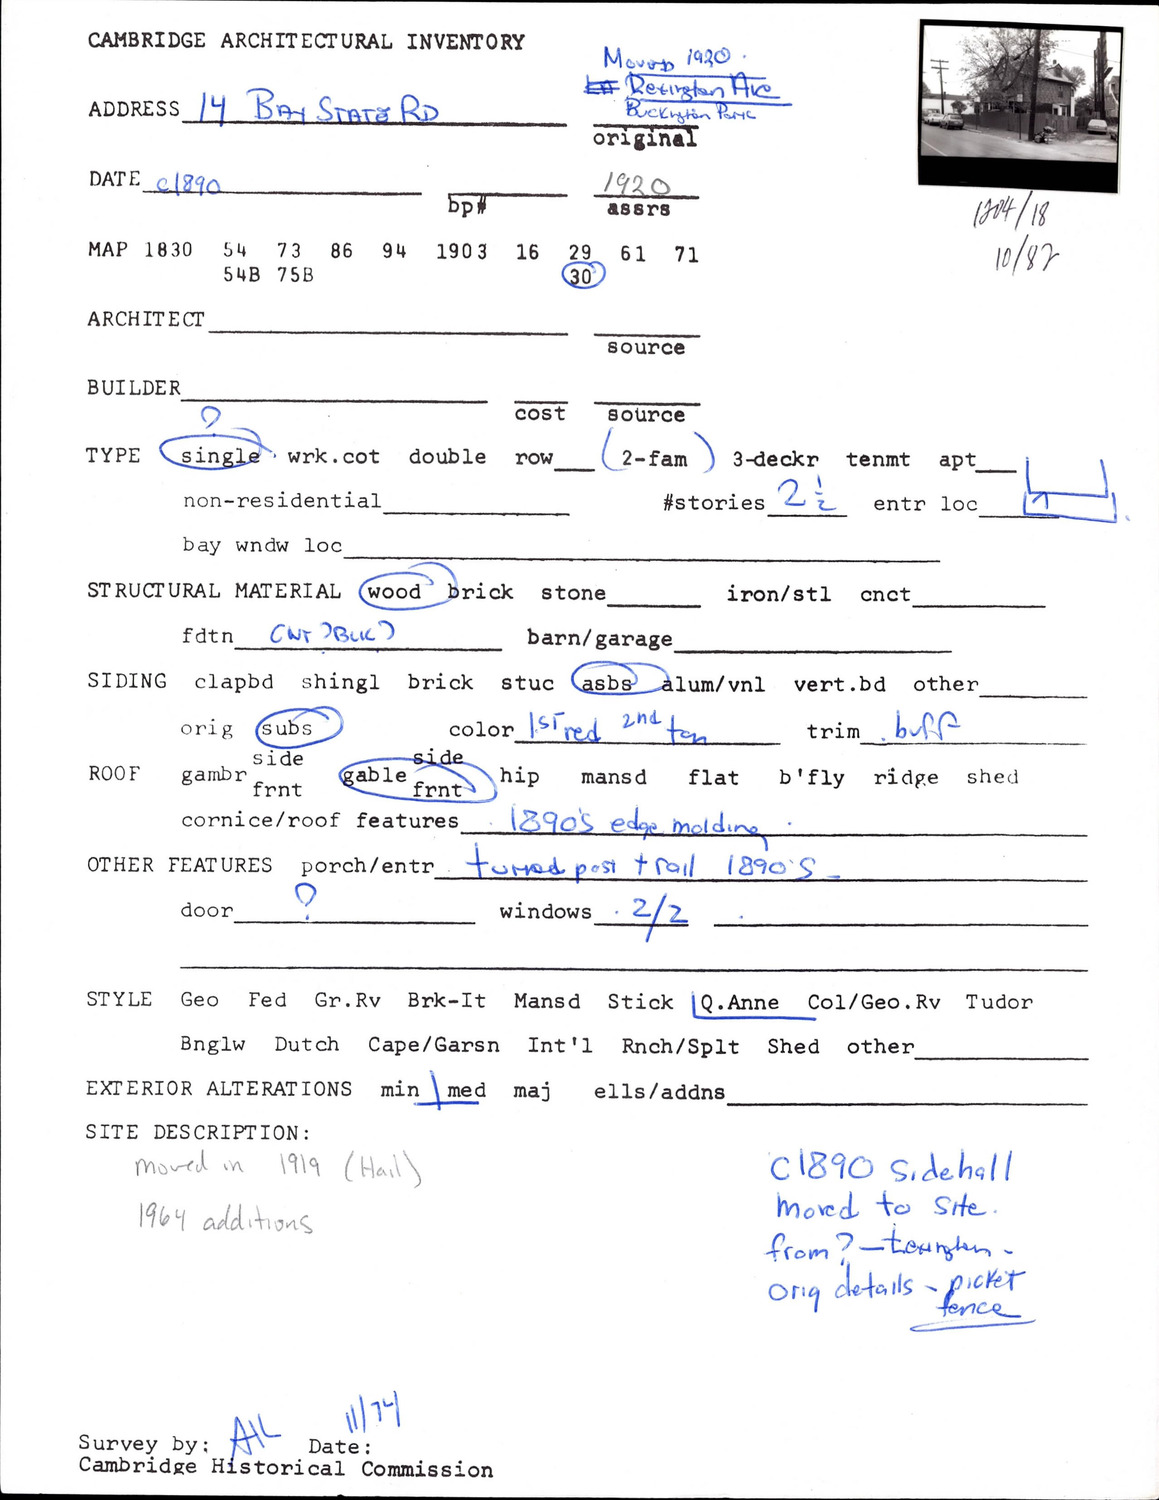 CAMBRIDGE ARCHITECTURAL INVENTORY
Moved 1920.
Lexington Ave
Buckington Park
ADDRESS 14 BAY STATE RD
original
DATE c1890 bp# 1920 assrs
1204/18
10/82
MAP 1830 54 73 86 94 1903 16 29 61 71
54B 75B 30
ARCHITECT source
BUILDER cost source
?
TYPE single wrk.cot double row (2-fam) 3-deckr tenmt apt
non-residential #stories 2½ entr loc
bay wndw loc
STRUCTURAL MATERIAL wood brick stone iron/stl cnct
fdtn CNT ?BLK? barn/garage
SIDING clapbd shingl brick stuc asbs alum/vnl vert.bd other
orig subs color 1ST red 2nd tan trim buff
ROOF gambr side frnt gable side frnt hip mansd flat b'fly ridge shed
cornice/roof features 1890's edge molding
OTHER FEATURES porch/entr turned post + rail 1890's
door ? windows 2/2
STYLE Geo Fed Gr.Rv Brk-It Mansd Stick Q.Anne Col/Geo.Rv Tudor
Bnglw Dutch Cape/Garsn Int'l Rnch/Splt Shed other
EXTERIOR ALTERATIONS min med maj ells/addns
SITE DESCRIPTION:
moved in 1919 (Hail)
1964 additions
C1890 sidehall
moved to site.
from? - Lexington -
orig details - picket
fence
11/74
Survey by: AHL Date:
Cambridge Historical Commission